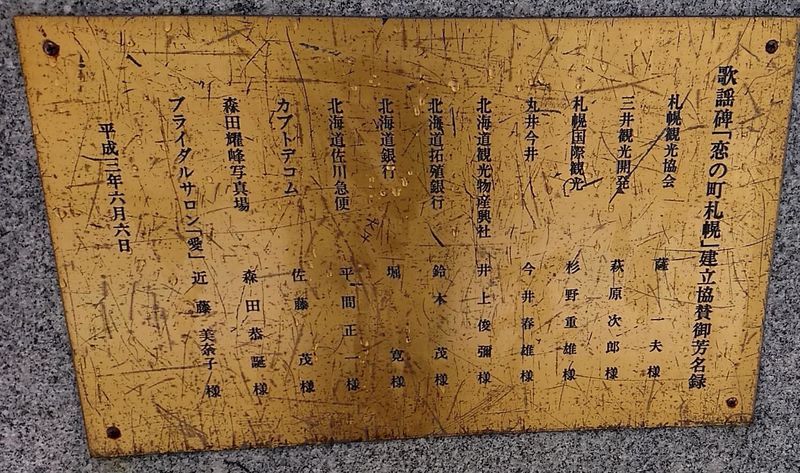 歌謡碑「恋の町札幌」建立協賛御芳名録
札幌観光協会 薩 一夫様
三井観光開発 萩原次郎様
札幌国際観光 杉野重雄様
丸井今井 今井春雄様
北海道観光物産興社 井上俊彌様
北海道拓殖銀行 鈴木 茂様
北海道銀行 堀 寛様
北海道佐川急便 平間正一様
カブトデコム 佐藤 茂様
森田耀峰写真場 森田恭誕様
ブライダルサロン「愛」 近藤美奈子様
平成三年六月六日